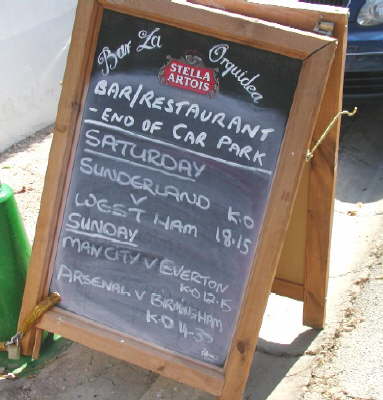 Bar La Orquidea
STELLA
ARTOIS
BAR/RESTAURANT
- END OF CAR PARK
SATURDAY
SUNDERLAND
V K.O
WEST HAM 18.15
SUNDAY
MAN CITY V EVERTON
K.O 12.15
ARSENAL V BIRMINGHAM
K.O 14-55